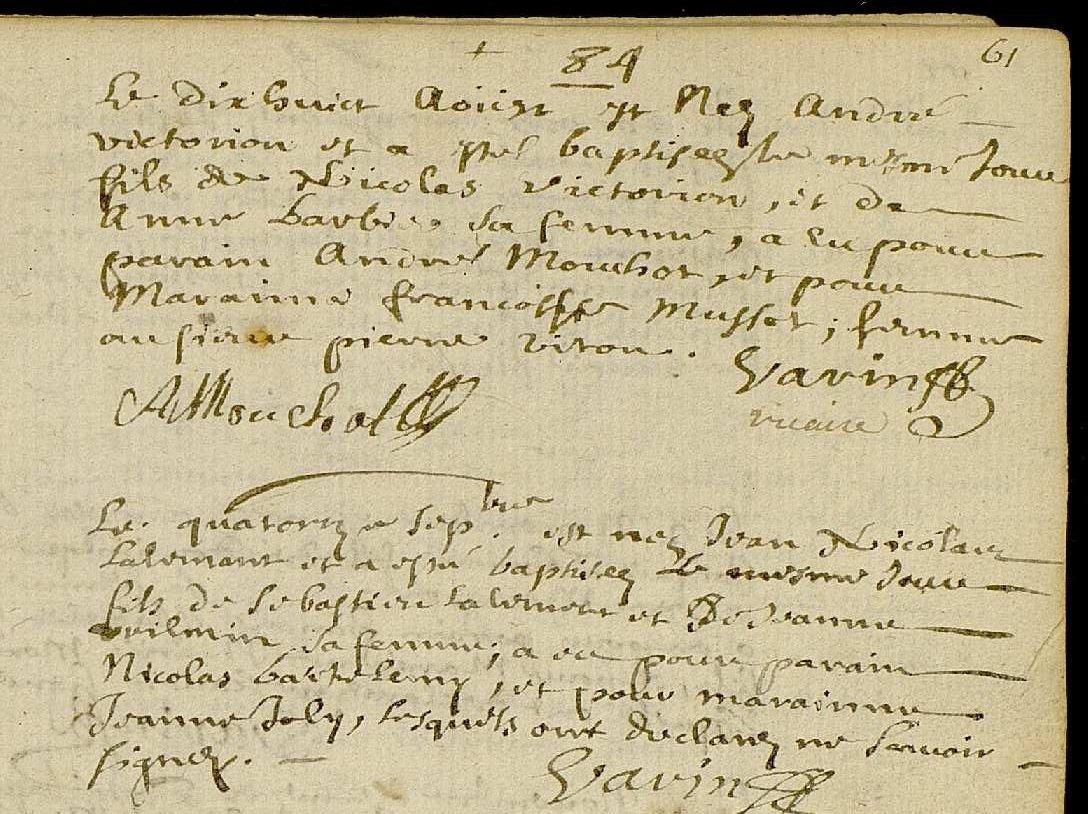 + 84 61
Le dix huict Aoust est Neÿ André
victorion et a esté baptisez le mesme Jour
fils de Nicolas victorion, et de
Anne barbie, sa femme, a eu pour
parain André Mouchot, et pour
Maraine francoisse Musset; femme
au sieur pierre viton.
Vavin
AMouchot
vicaire
Le quatorze sepbre est neÿ Jean Nicolas
Lalemant et a esté baptisez Le mesme Jour
fils de sebastien Lalement et De Jeanne
vuilmin sa femme; a eu pour parain
Nicolas bartelemy, et pour marainne
Jeanne Joly, lesquels ont declarez ne scavoir
signez.
Vavin